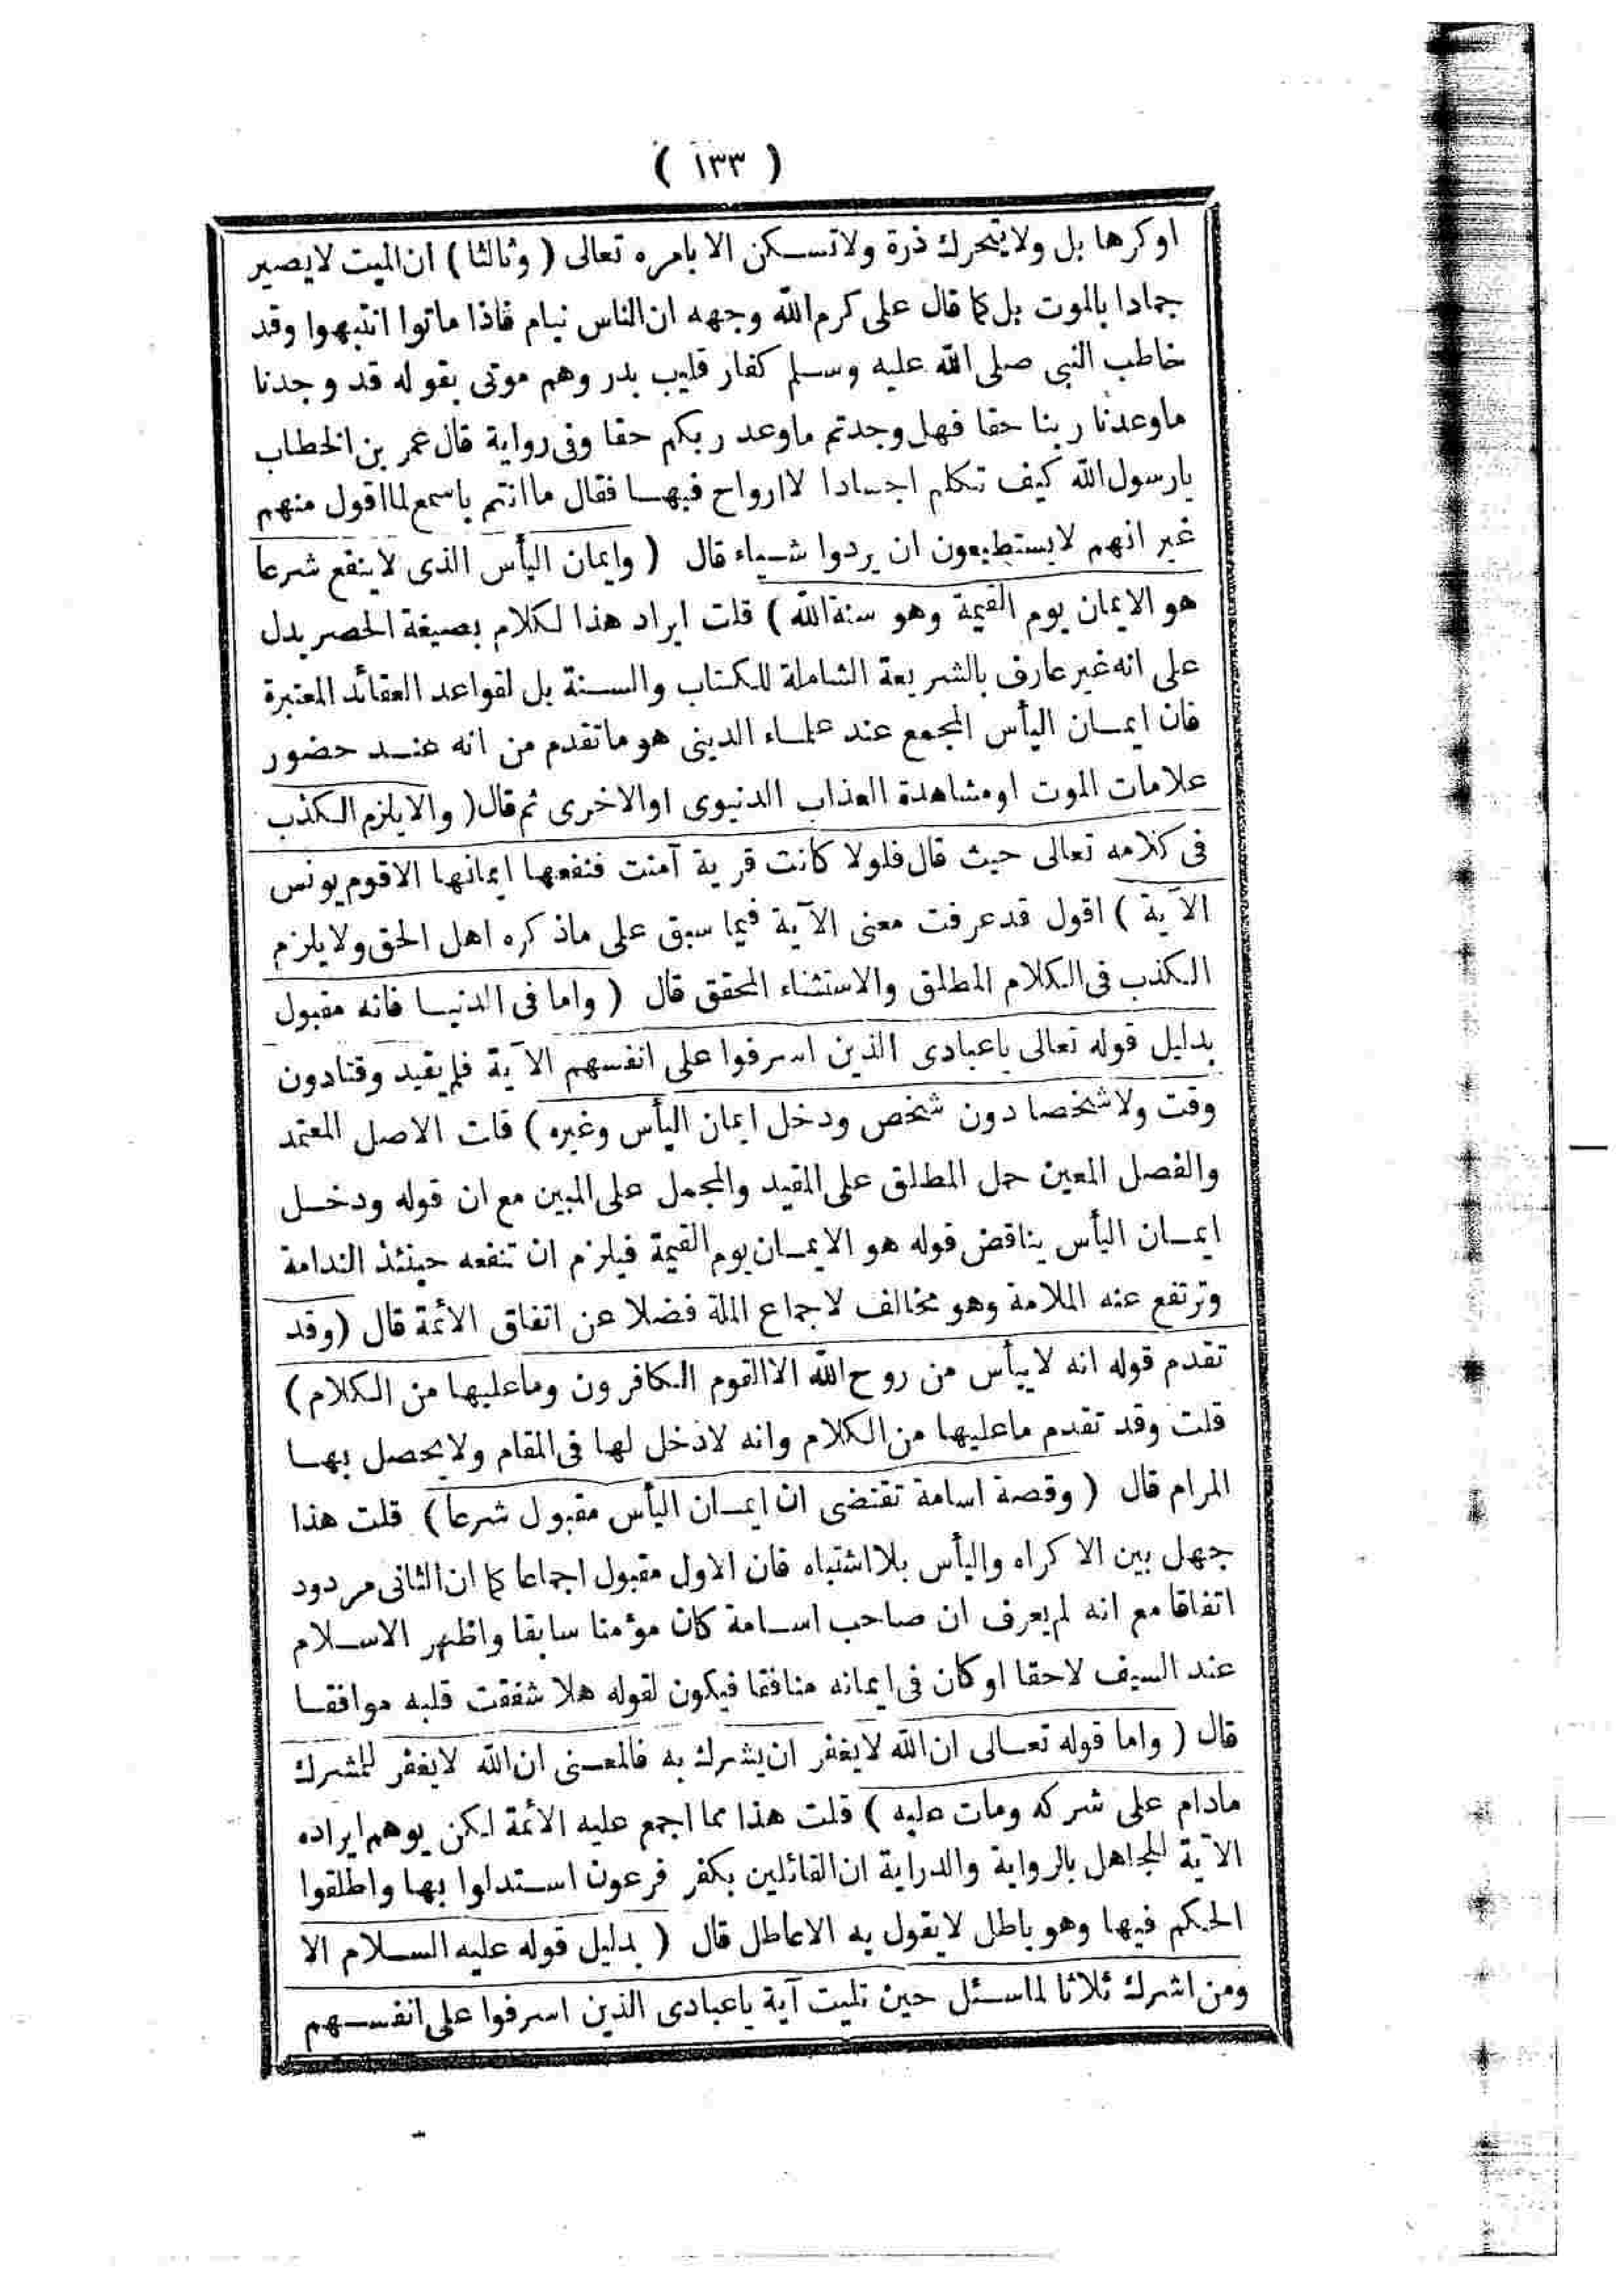 ( ١٣٣ )
اوكرها بل ولا يتحرك ذرة ولا تسكن الا بامره تعالى ( وثالثا ) ان الميت لا يصير
جمادا بالموت بل كما قال على كرم الله وجهه ان الناس نيام فاذا ماتوا انتبهوا وقد
خاطب النبى صلى الله عليه وسلم كفار قليب بدر وهم موتى بقوله قد وجدنا
ماوعدنا ربنا حقا فهل وجدتم ماوعد ربكم حقا وفى رواية قال عمر بن الخطاب
يارسول الله كيف تكلم اجسادا لا ارواح فيها فقال ما انتم باسمع لما اقول منهم
غير انهم لا يستطيعون ان يردوا شياء قال ( وايمان اليأس الذى لا ينفع شرعا
هو الايمان يوم القيمة وهو سنة الله ) قلت ايراد هذا لكلام بصيغة الحصر يدل
على انه غير عارف بالشريعة الشاملة للكتاب والسنة بل لقواعد العقائد المعتبرة
فان ايمان اليأس المجمع عند علماء الدينى هو ماتقدم من انه عند حضور
علامات الموت او مشاهدة العذاب الدنيوى او الاخرى ثم قال ( والا يلزم الكذب
فى كلامه تعالى حيث قال فلولا كانت قرية آمنت فنفعها ايمانها الا قوم يونس
الآية ) اقول قد عرفت معنى الآية فيما سبق على ماذكره اهل الحق ولا يلزم
الكذب فى الكلام المطلق والاستثناء المحقق قال ( واما فى الدنيا فانه مقبول
بدليل قوله تعالى ياعبادى الذين اسرفوا على انفسهم الآية فلم يقيد وقتادون
وقت ولا شخصا دون شخص ودخل ايمان اليأس وغيره ) قلت الاصل المعتمد
والفصل المعين حمل المطلق على المقيد والمجمل على المبين مع ان قوله ودخل
ايمان اليأس يناقض قوله هو الايمان يوم القيمة فيلزم ان تنفعه حينئذ الندامة
وترتفع عنه الملامة وهو مخالف لاجماع الملة فضلا عن اتفاق الأئمة قال ( وقد
تقدم قوله انه لا ييأس من روح الله الا القوم الكافرون وماعليها من الكلام )
قلت وقد تقدم ماعليها من الكلام وانه لادخل لها فى المقام ولا يحصل بها
المرام قال ( وقصة اسامة تقتضى ان ايمان اليأس مقبول شرعا ) قلت هذا
جهل بين الاكراه واليأس بلا اشتباه فان الاول مقبول اجماعا كما ان الثانى مردود
اتفاقا مع انه لم يعرف ان صاحب اسامة كان مؤمنا سابقا واظهر الاسلام
عند السيف لاحقا او كان فى ايمانه منافقا فيكون لقوله هلا شققت قلبه موافقا
قال ( واما قوله تعالى ان الله لا يغفر ان يشرك به فالمعنى ان الله لا يغفر للمشرك
مادام على شركه ومات عليه ) قلت هذا مما اجمع عليه الأئمة لكن يوهم ايراده
الآية للجاهل بالرواية والدراية ان القائلين بكفر فرعون استدلوا بها واطلقوا
الحكم فيها وهو باطل لا يقول به الا عاطل قال ( بدليل قوله عليه السلام الا
ومن اشرك ثلاثا لماسئل حين تليت آية ياعبادى الذين اسرفوا على انفسهم